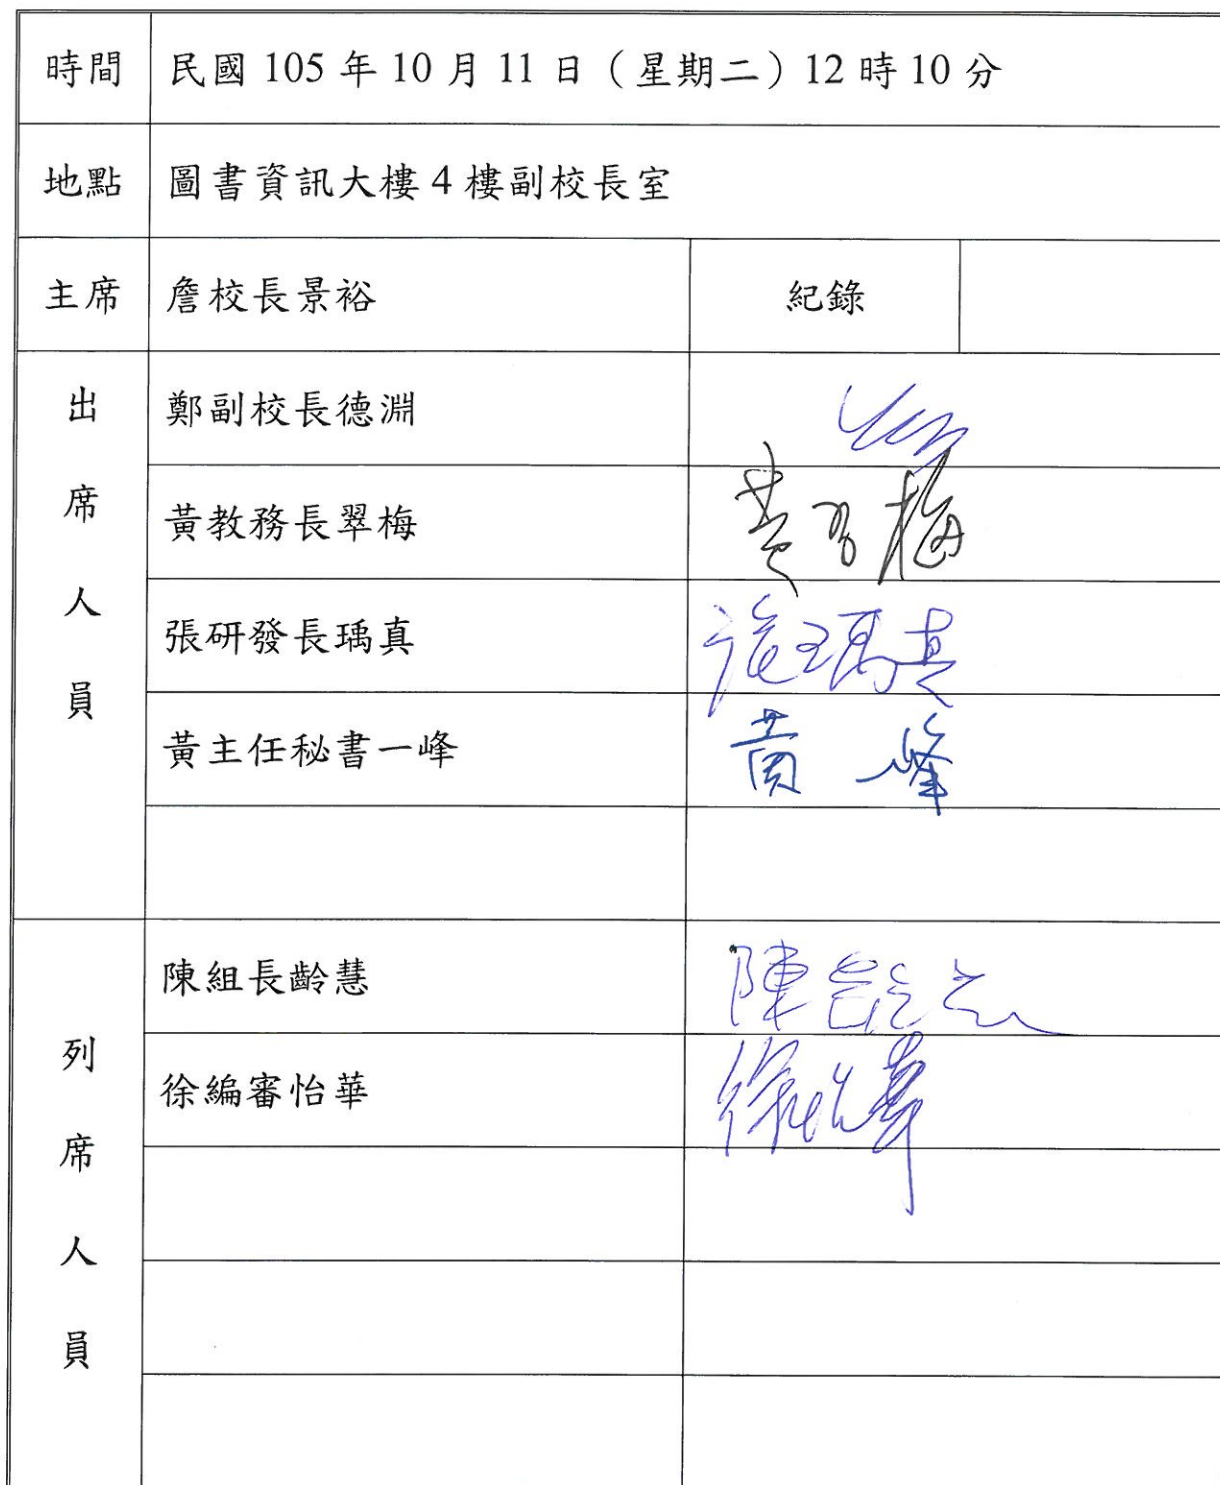 時間 民國 105 年 10 月 11 日（星期二）12 時 10 分
地點 圖書資訊大樓 4 樓副校長室
主席 詹校長景裕 紀錄
出席人員
鄭副校長德淵
黃教務長翠梅 黃翠梅
張研發長瑀真 瑀真
黃主任秘書一峰 黃一峰
列席人員
陳組長齡慧 陳齡慧
徐編審怡華 徐怡華